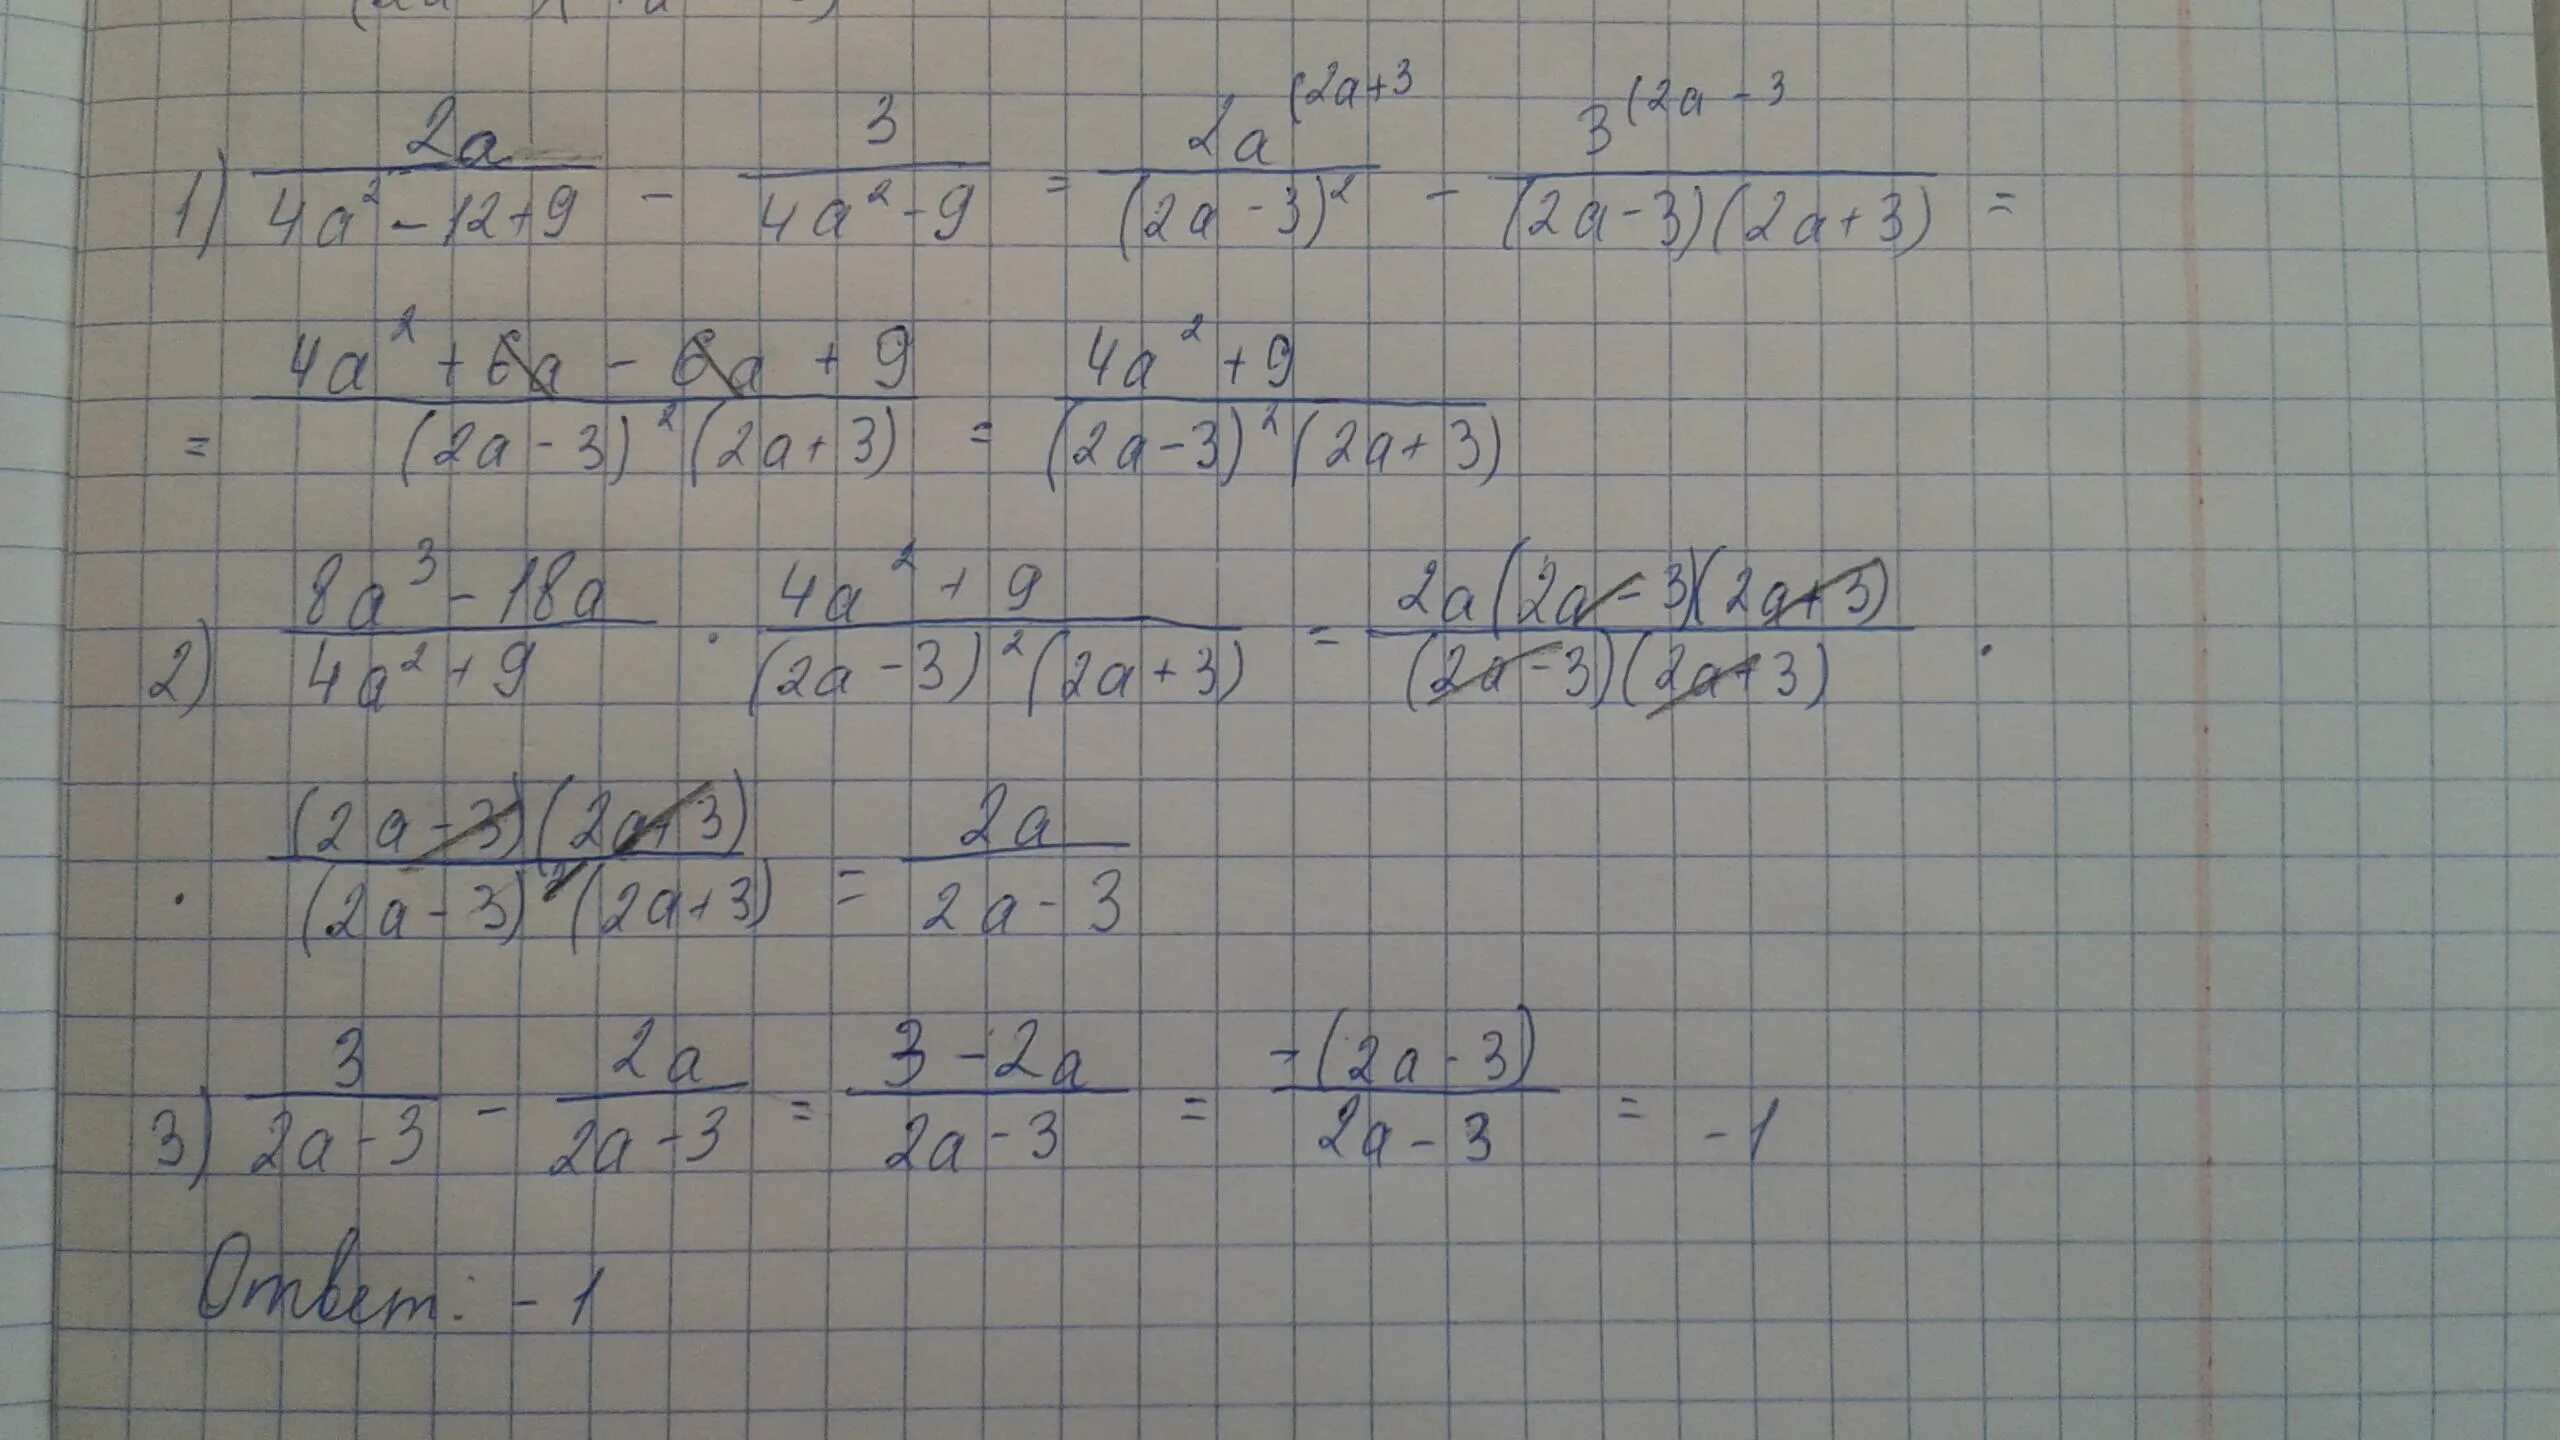 1) 2a/(4a² - 12 + 9) - 3/(4a² - 9) = 2a^(2a+3/(2a - 3)² - 3^(2a - 3/((2a - 3)(2a + 3)) =
= (4a² + 6a - 6a + 9)/((2a - 3)²(2a + 3)) = (4a² + 9)/((2a - 3)²(2a + 3))
2) (8a³ - 18a)/(4a² + 9) · (4a² + 9)/((2a - 3)²(2a + 3)) = 2a(2a - 3)(2a + 3)/((2a - 3)(2a + 3)) ·
· (2a - 3)(2a + 3)/((2a - 3)²(2a + 3)) = 2a/(2a - 3)
3) 3/(2a - 3) - 2a/(2a - 3) = (3 - 2a)/(2a - 3) = -(2a - 3)/(2a - 3) = -1
Ответ: - 1